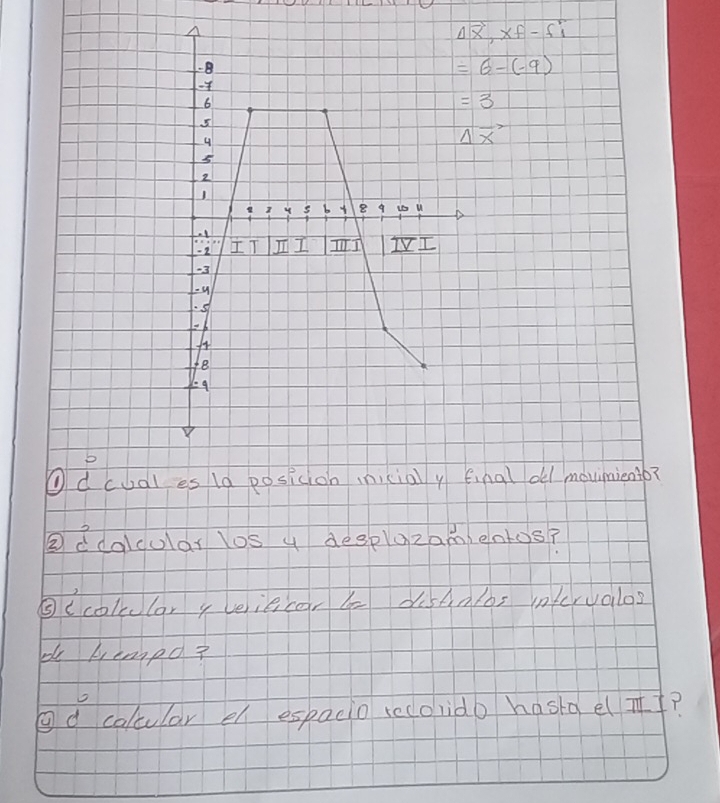 Δx⃗, xf - fi
= 6 - (-9)
= 3
Δx⃗
-8
-7
6
5
4
5
2
1
2 3 4 5 6 7 8 9 10 11
-1
-2
I I | II I | III I | IV I
-3
-4
-5
-6
-7
-8
-9
① ¿cual es la posicion inicial y final del movimiento?
② ¿calcular los 4 desplazamientos?
③ ¿calcular y verificar los distintos intervalos
de tiempo?
④ ¿calcular el espacio recorido hasta el III I?